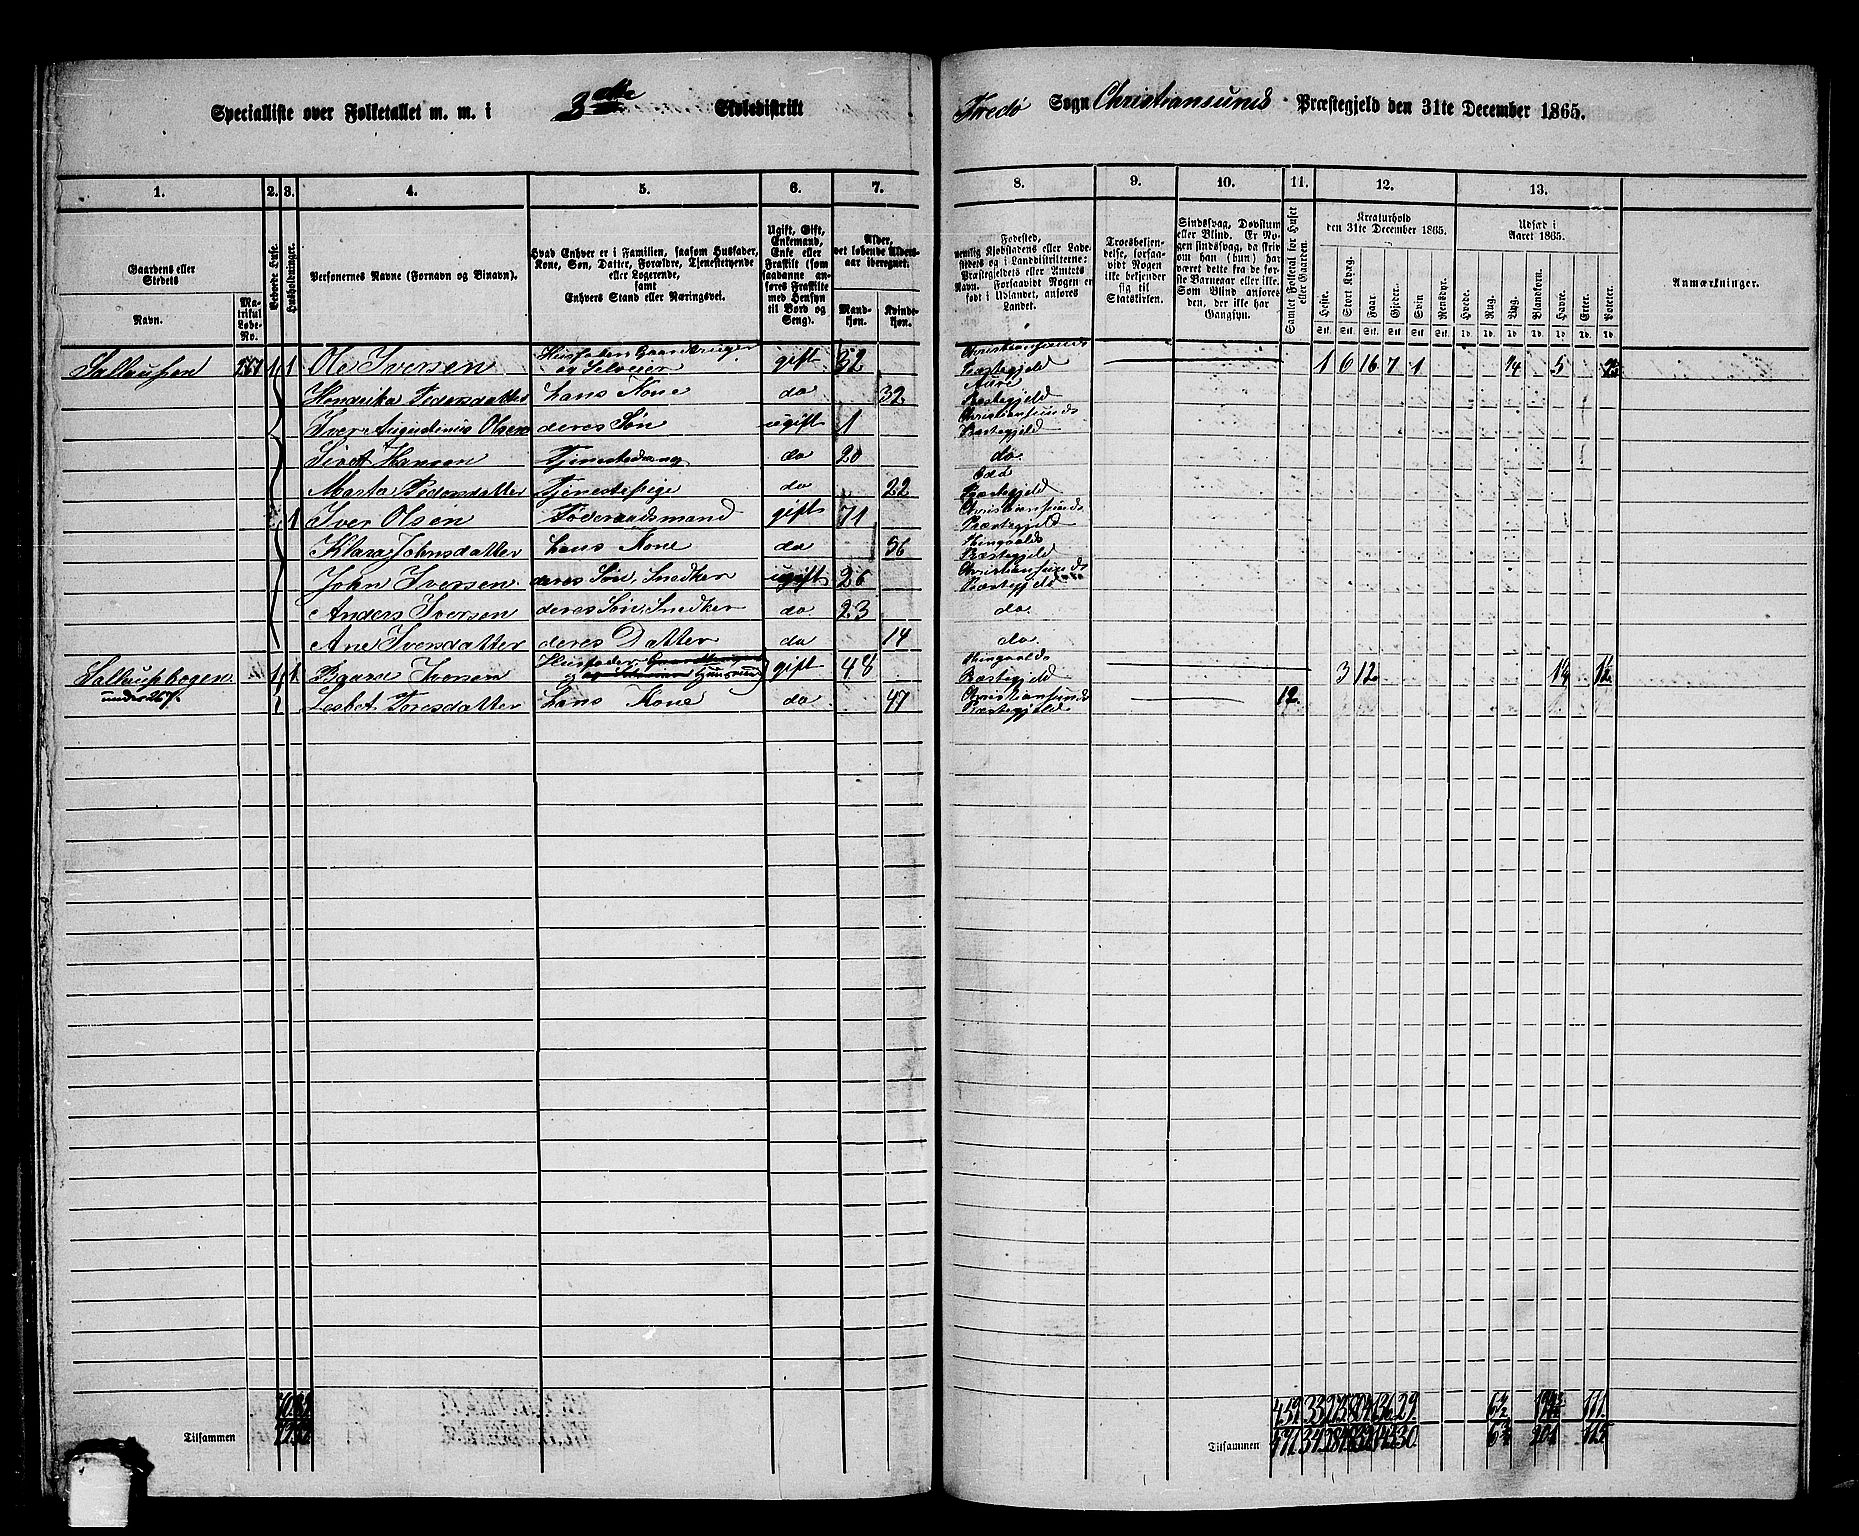 Specialliste over Folketallet m. m. i 3die Skoledistrikt
Fredø Sogn Christiansunds Præstegjeld den 31te December 1865.
1. 2. 3. 4. 5. 6. 7.
8. 9. 10. 11. 12. 13.
Gaardens eller Stedets
Navn.
Matrikul Løbe-No.
Beboede Huse.
Husholdninger.
Personernes Navne (Fornavn og Binavn).
Hvad Enhver er i Familien, saasom Husfader, Kone, Søn, Datter, Forældre, Tjenestetyende eller Logerende, samt Enhvers Stand eller Næringsvei.
Ugift, Gift, Enkemand, Enke eller Fraskilt (som saadanne anføres Fraskilte med Hensyn til Bord og Seng).
Alder, det løbende Alders-aar iberegnet.
Mandkjøn.
Kvindekjøn.
Fødested, nemlig Kjøbstadens eller Ladestedets og i Landdistrikterne: Præstegjeldets eller Amtets Navn. Forsaavidt Nogen er født i Udlandet, anføres Landet.
Troesbekjendelse, forsaavidt Nogen ikke bekjender sig til Statskirken.
Sindssvag, Døvstum eller Blind. Er Nogen sindssvag, da skriv om han (hun) har været dette fra de første Barneaar eller ikke. Som Blind ansøres den, der ikke har Gangsyn.
Samlet Folketal for Huset eller Gaarden.
Kreaturhold den 31te December 1865.
Heste. Stort Kvæg. Faar. Gjeder. Svin. Rensdyr.
Udsæd i Aaret 1865.
Hvede. Rug. Byg. Blandkorn. Havre. Erter. Poteter.
Anmærkninger.
267 1 1 Ole Iversen Husfader Gaardbruger og Selveier gift 32 Christiansunds Præstegjeld 1 6 16 7 1 1/4 5
Hendrika Pedersdatter hans Kone do 32 Aure Præstegjeld
Iver Augudinus Olsen deres Søn ugift 1 Christiansunds Præstegjeld
Sivert Hansen Tjenestedreng do 20 do
Marta Pedersdatter Tjenestepige do 22 Præstegjeld
1 Iver Olsen Føderaadsmand gift 71 Christiansunds Præstegjeld
Klara Johnsdatter hans Kone do 56 Præstegjeld
John Iversen deres Søn, Snedker ugift 26 Christiansunds Præstegjeld
Anders Iversen deres Søn, Snedker do 23 do
Ane Iversdatter deres Datter do 14 do
1 1 Baard Iversen Husfader gift 48 Præstegjeld 3 12
under 267. Lisbet Toresdatter hans Kone do 47 Christiansunds Præstegjeld 12
Tilsammen
Tilsammen